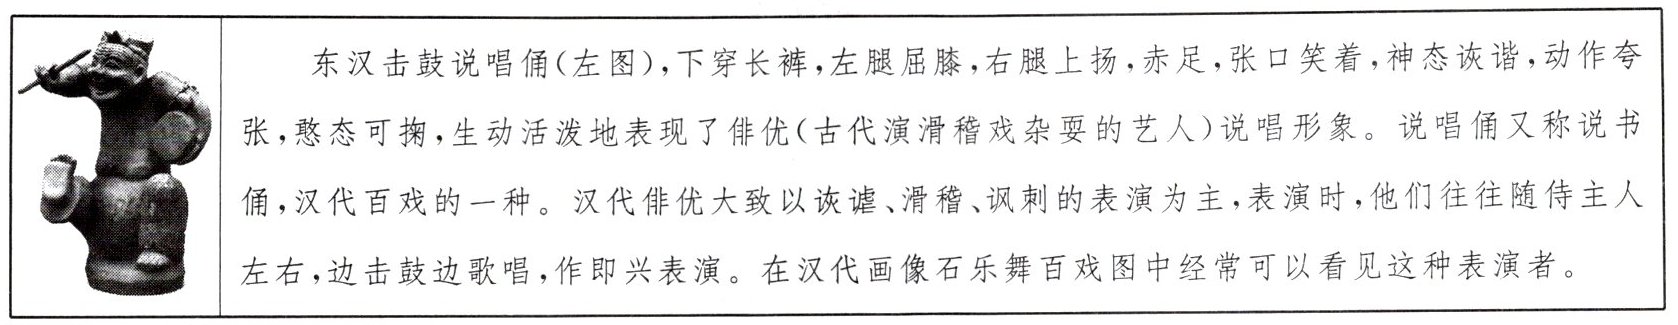 东汉击鼓说唱俑(左图),下穿长裤,左腿屈膝,右腿上扬,赤足,张口笑着,神态诙谐,动作夸
张,憨态可掬,生动活泼地表现了俳优(古代演滑稽戏杂耍的艺人)说唱形象。说唱俑又称说书
俑,汉代百戏的一种。汉代俳优大致以诙谑、滑稽、讽刺的表演为主,表演时,他们往往随侍主人
左右,边击鼓边歌唱,作即兴表演。在汉代画像石乐舞百戏图中经常可以看见这种表演者。